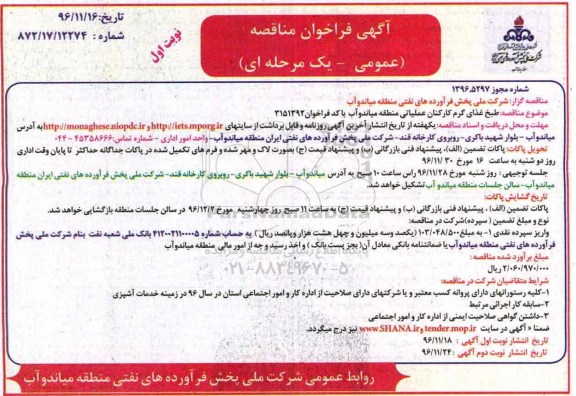 تاریخ:۹۶/۱۱/۱۶
شماره : ۸۷۲/۱۷/۱۲۲۷۴
نوبت اول
آگهی فراخوان مناقصه
(عمومی - یک مرحله ای)
شماره مجوز ۱۳۹۶.۵۲۹۷
مناقصه گزار: شرکت ملی پخش فرآورده های نفتی منطقه میاندوآب
موضوع مناقصه: طبخ غذای گرم کارکنان عملیاتی منطقه میاندوآب با کد فراخوان ۳۱۵۱۳۹۲
مهلت و محل دریافت و اسناد مناقصه: یکهفته از تاریخ انتشار آخرین آگهی روزنامه و قابل برداشت از سایتهای http://iets.mporg.ir و http://monaghese.niopdc.ir به آدرس
میاندوآب - بلوار شهید باکری - روبروی کارخانه قند- شرکت ملی پخش فرآورده های نفتی ایران منطقه میاندوآب - واحد امور اداری - شماره تماس: ۴۵۳۵۸۶۶۶-۰۴۴
تحویل پاکات: پاکات تضمین (الف)، پیشنهاد فنی بازرگانی (ب) و پیشنهاد قیمت (ج) بصورت لاک و مهر شده و فرم های تکمیل شده در پاکات جداگانه حداکثر تا پایان وقت اداری
روز دو شنبه به ساعت ۱۶ مورخ ۹۶/۱۱/۳۰
جلسه توجیهی: روز شنبه مورخ ۹۶/۱۱/۲۸ راس ساعت ۱۰ صبح به آدرس میاندوآب - بلوار شهید باکری- روبروی کارخانه قند- شرکت ملی پخش فرآورده های نفتی ایران منطقه
میاندوآب- سالن جلسات منطقه میاندوآب تشکیل خواهد شد.
تاریخ گشایش پاکات:
پاکات تضمین (الف) ، پیشنهاد فنی بازرگانی (ب) و پیشنهاد قیمت (ج) به ساعت ۱۱ صبح روز چهارشنبه مورخ ۹۶/۱۲/۲ در سالن جلسات منطقه بازگشایی خواهد شد.
نوع و مبلغ تضمین (سپرده) شرکت در مناقصه:
واریز سپرده نقدی ۱- به مبلغ ۱۰۳/۰۴۸/۵۰۰ (یکصد وسه میلیون و چهل هشت هزار وپانصد ریال) به حساب شماره ۴۱۲۰۰۲۱۱۰۰۰۵ بانک ملی شعبه نفت بنام شرکت ملی پخش
فرآورده های نفتی منطقه میاندوآب یا ضمانتنامه بانکی معادل آن (بجز پست بانک) و اخذ رسید وجه از امور مالی منطقه میاندوآب
مبلغ برآورد شده مناقصه:
۲/۰۶۰/۹۷۰/۰۰۰ ریال
شرایط متقاضیان شرکت در مناقصه:
۱-کلیه رستورانهای دارای پروانه کسب معتبر و یا شرکتهای دارای صلاحیت از اداره کار و امور اجتماعی استان در سال ۹۶ در زمینه خدمات آشپزی
۲-سابقه کار اجرائی مرتبط
۳-داشتن گواهی صلاحیت ایمنی از اداره کار و امور اجتماعی
ضمنا « آگهی در سایت tender.mop.ir و www.SHANA.ir نیز درج میگردد.
تاریخ انتشار نوبت اول آگهی : ۹۶/۱۱/۱۸
تاریخ انتشار نوبت دوم آگهی : ۹۶/۱۱/۲۴
روابط عمومی شرکت ملی پخش فرآورده های نفتی منطقه میاندوآب
۰۲۱-۸۸۳۴۹۶۷۰-۵